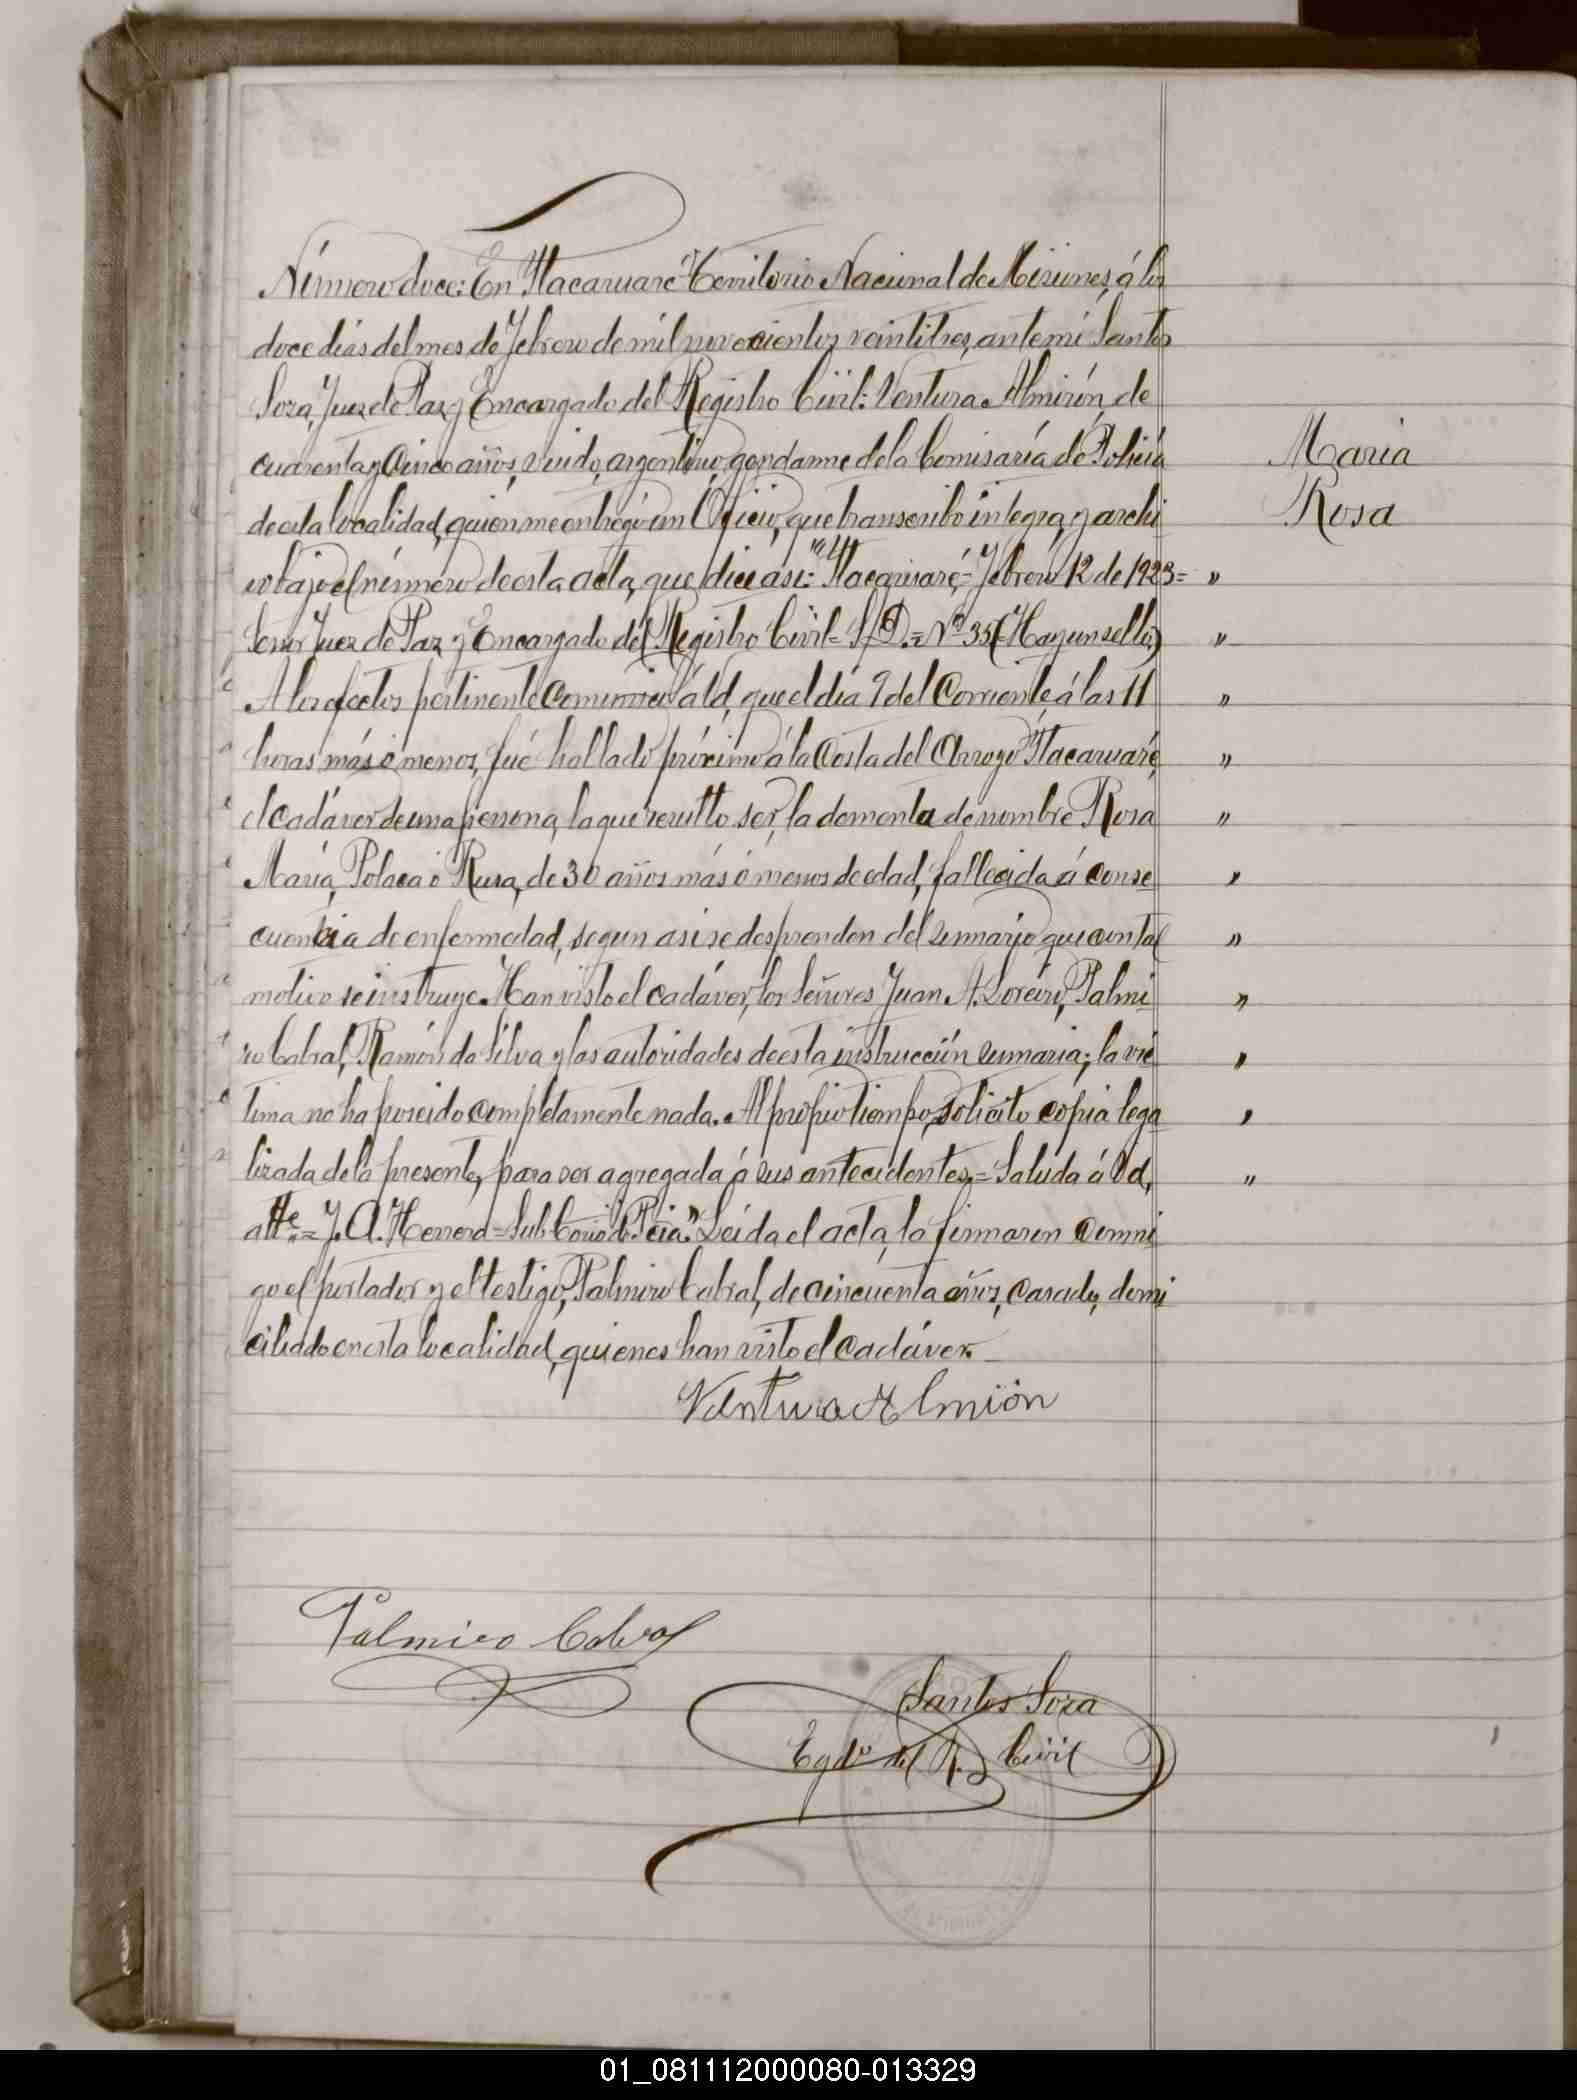 Número doce: En Itacaruaré Territorio Nacional de Misiones, á los
doce días del mes de Febrero de mil novecientos veintitres, ante mí Santos
Soza, Juez de Paz y Encargado del Registro Civil: Ventura Almirón, de
cuarenta y cinco años, viudo, argentino, gendarme de la Comisaría de Policía
de esta localidad, quién me entregó un Oficio, que transcribo íntegra, y archi
vo bajo el número de esta acta, que dice así: "Itacaruaré,= Febrero 12 de 1923= "
Señor Juez de Paz y Encargado del Registro Civil= S/D.= Nº 35 (Hay un sello) "
A los efectos pertinente comunico á Ud, que el día 9 del corriente, á las 11 "
horas más ó menos, fué hallado próximo á la Costa del Arroyo Itacaruaré, "
el cadáver de una persona, la que resultó ser, la dementa de nombre Rosa "
María, Polaca ó Rusa, de 30 años más ó menos de edad, fallecida á conse "
cuencia de enfermedad, segun asi se desprenden del sumario que con tal "
motivo se instruye. Han visto el cadáver, los Señores Juan A. Loreiro, Palmi "
ro Cabral, Ramón da Silva y las autoridades de esta instrucción sumaria; la víc "
tima no ha poseido completamente nada. Al propio tiempo, solicito copia lega "
lizada de la presente, para ser agregada á sus antecedentes,= Saluda á Ud, "
atte.= J. A. Herrera= Sub Comio de Pcia." Leída el acta, la firmaron conmi
go el portador y el testigo, Palmiro Cabral, de cincuenta años, casado, domi
ciliado en esta localidad, quienes han visto el cadáver.
Maria
Rosa
Ventura Almirón
Palmiro Cabral
Santos Soza
Egdo del R. Civil
01_081112000080-013329